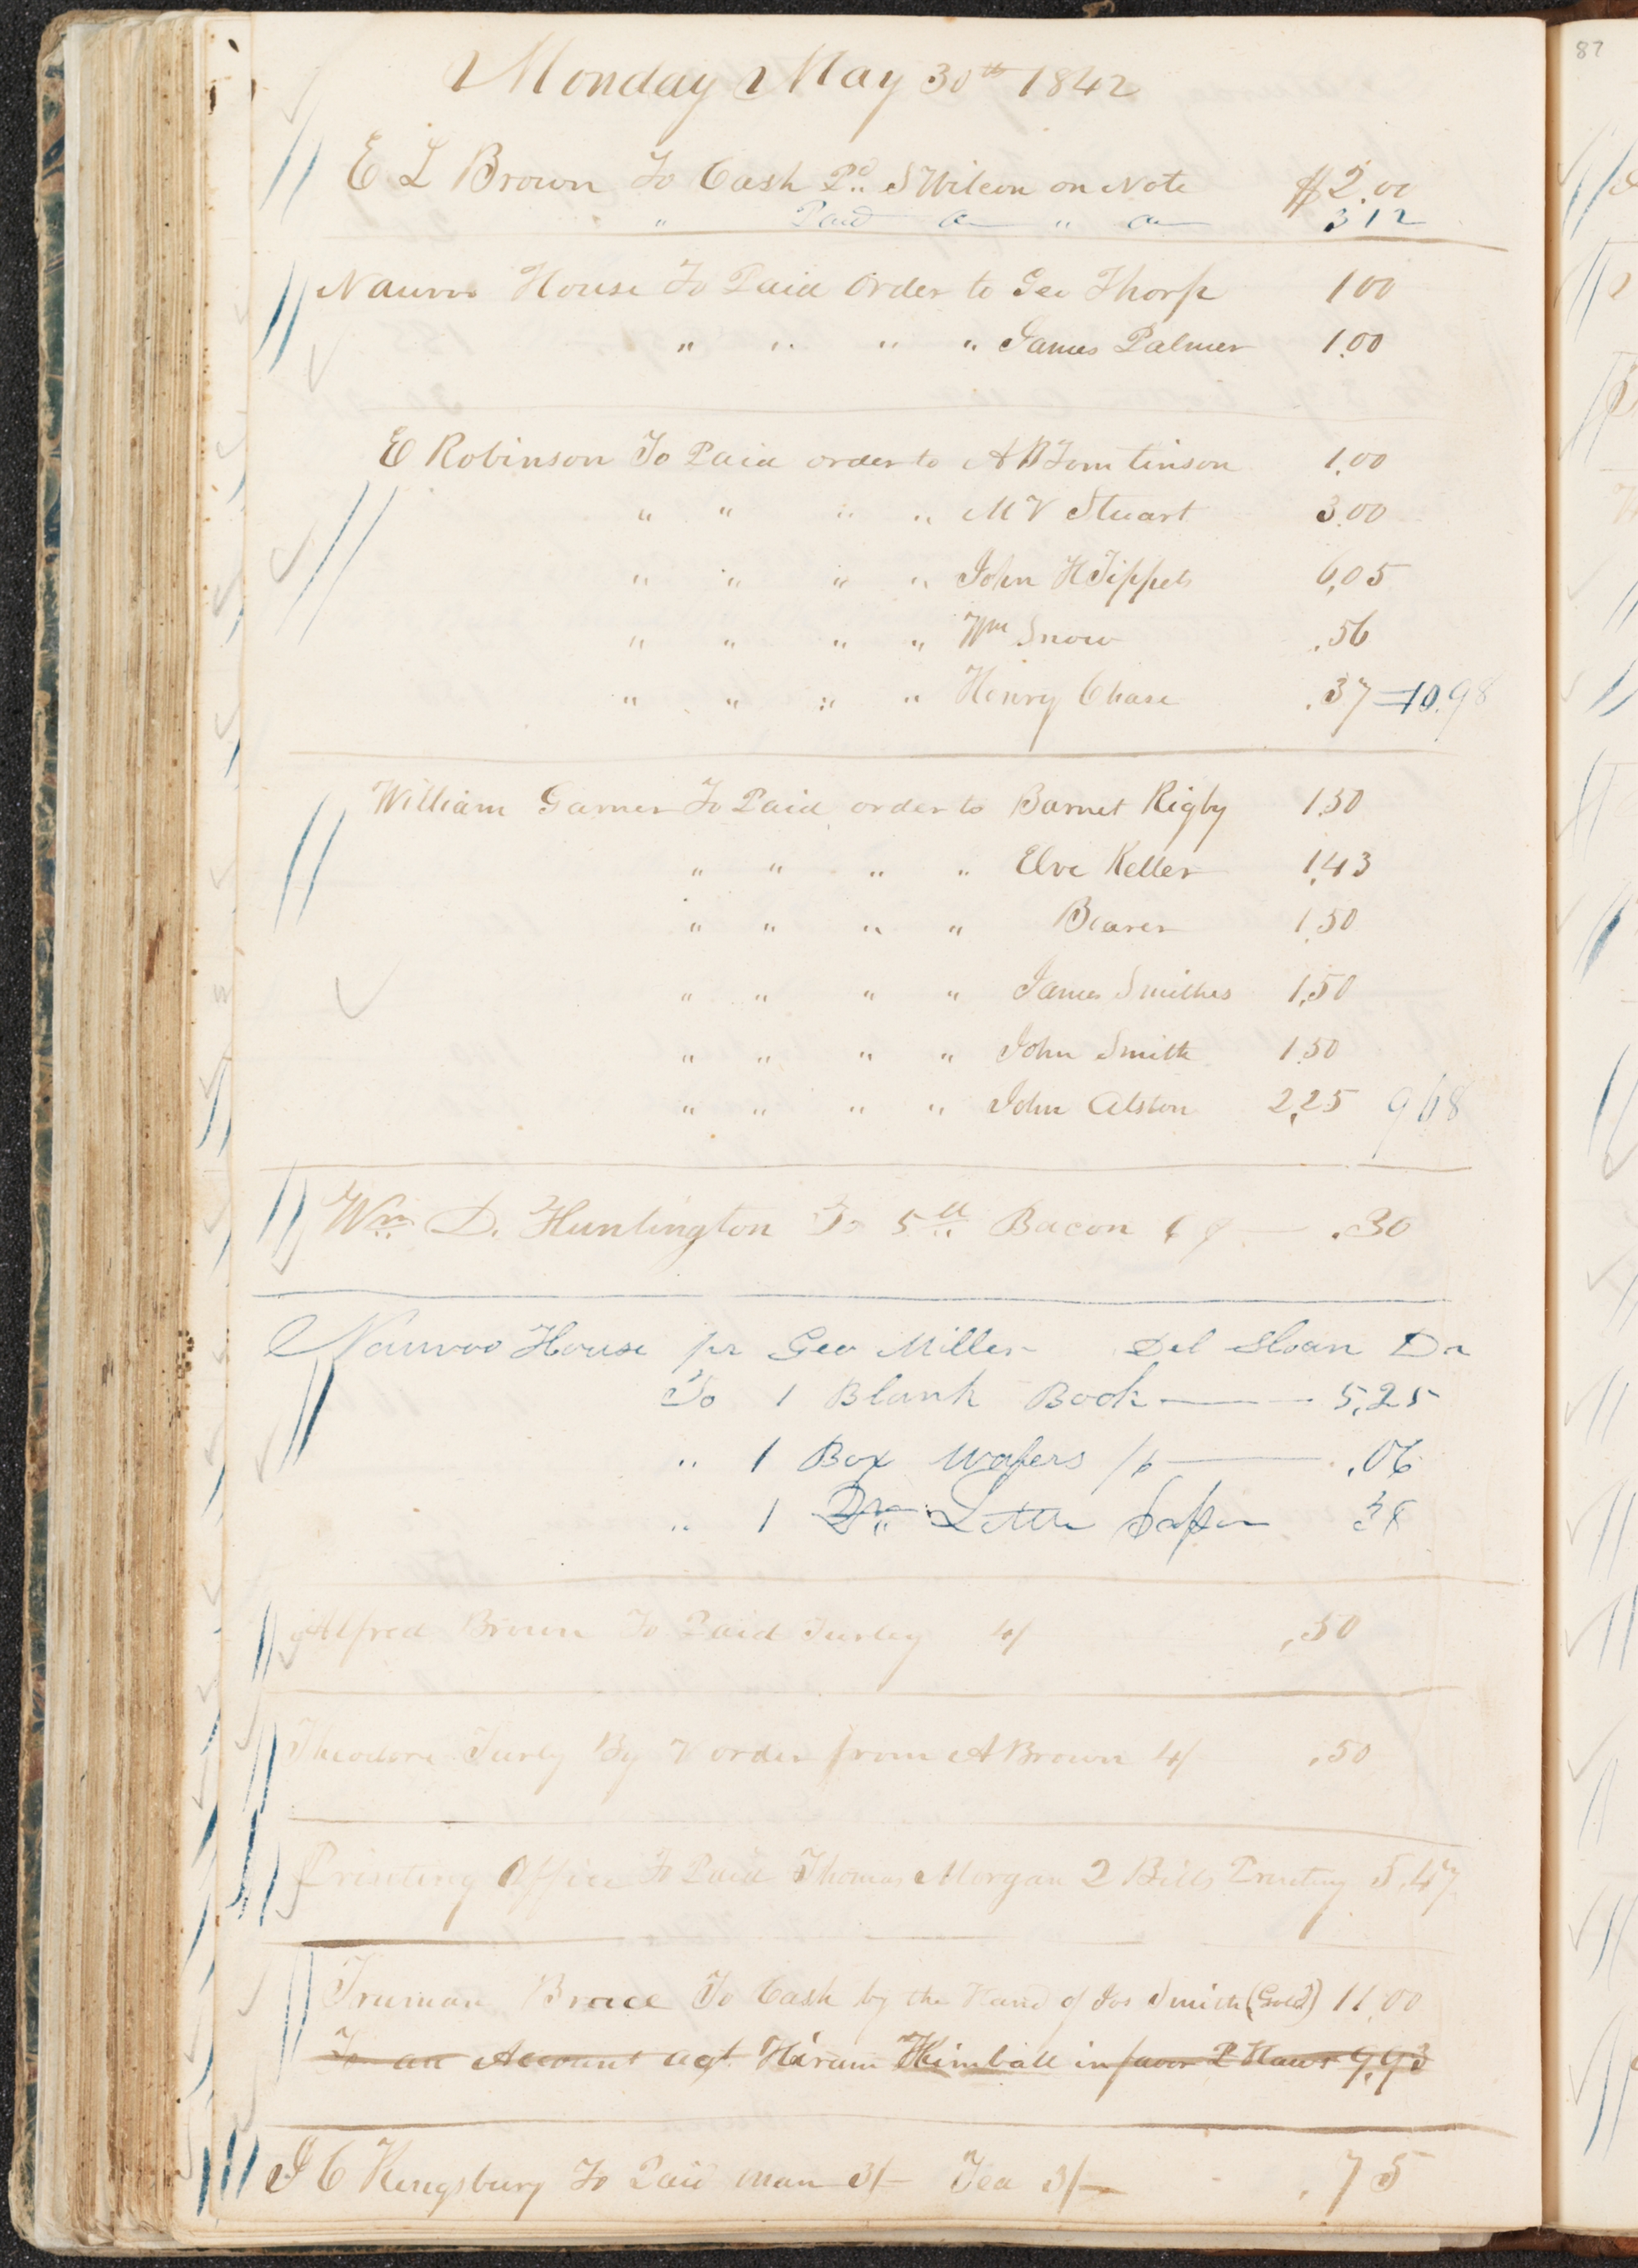 Monday May 30th 1842
E L Brown To Cash Pd S Wilson on Note $2.00
" Paid " 312
Nauvoo House To Paid Order to Geo Thorp 100
" " " " James Palmer 1.00
E Robinson To Paid order to A B Tomlinson 1.00
" " " " M V Stuart 3.00
" " " " John H Tippets 6,05
" " " " Wm Snow .56
" " " " Henry Chase .37=10.98
William Garner To Paid order to Barnet Rigby 1.50
" " " " Elve Keller 1,43
" " " " Bearer 1.50
" " " " James Smithes 1,50
" " " " John Smith 1.50
" " " " John Alston 2,25 968
Wm D. Huntington To 5 ll Bacon 6 — .30
Nauvoo House pr Geo Miller Del Sloan Dr
To 1 Blank Book — 5,25
" 1 Box Wafers /6 — .06
" 1 Qr Letter Paper 38
Alfred Brown To Paid Turley 4/ ,50
Theodore Turly By V order from A Brown 4/ .50
Printing Office To Paid Thomas Morgan 2 Bills Printing 5.47
Truman Brace To Cash by the Hand of Jos Smith (Gold) 11,00
To an Account agt. Hiram Kimball in favor P Haws 9,93
J C Kingsbury To Paid man 3/– Tea 3/– .75
87